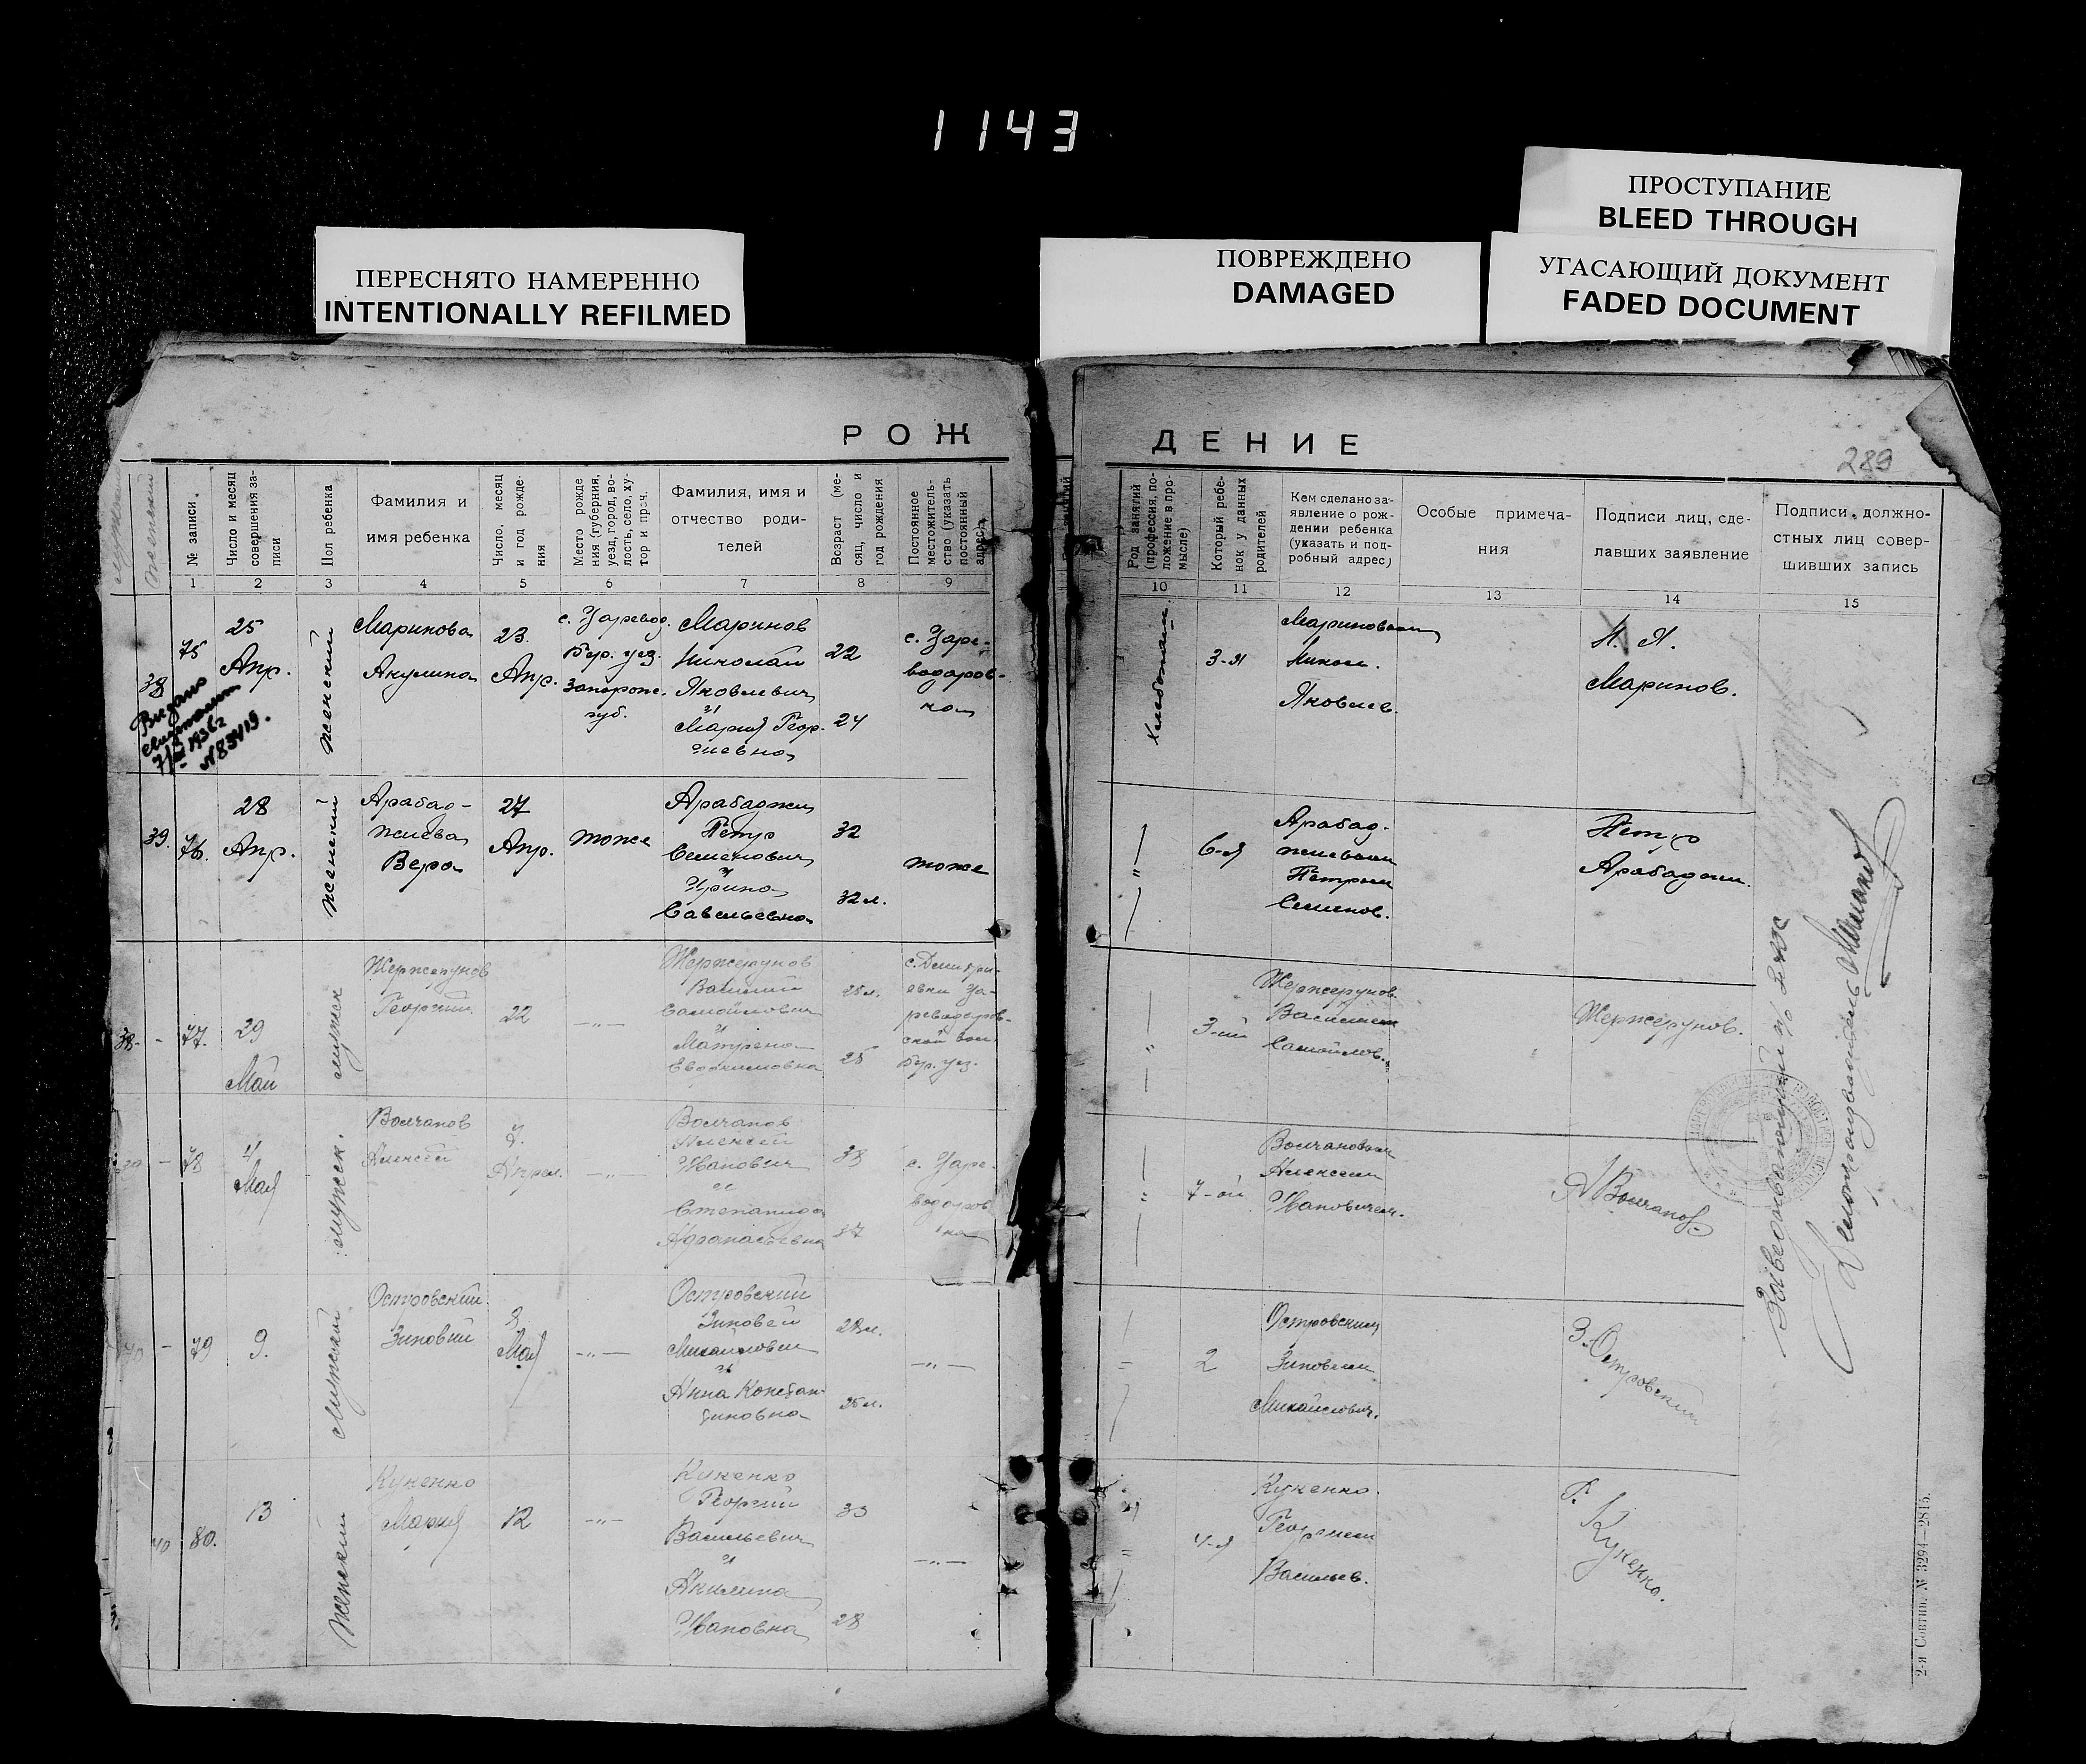 1143
ПРОСТУПАНИЕ
BLEED THROUGH
ПЕРЕСНЯТО НАМЕРЕННО
INTENTIONALLY REFILMED
ПОВРЕЖДЕНО
DAMAGED
УГАСАЮЩИЙ ДОКУМЕНТ
FADED DOCUMENT
РОЖ
ДЕНИЕ
289
№ записи.
Число и месяц
совершения за-
писи
Пол ребенка
Фамилия и
имя ребенка
Число, месяц
и год рожде-
ния
Место рожде
ния (губерния,
уезд, город, во-
лость, село, ху-
тор и проч.
Фамилия, имя и
отчество роди-
телей
Возраст (ме-
сяц, число и
год рождения
Постоянное
местожитель-
ство (указать
постоянный
адрес)
Род занятий
(профессия, по-
ложение в про-
мысле)
Который ребе-
нок у данных
родителей
Кем сделано за-
явление о рож-
дении ребенка
(указать и под-
робный адрес)
Особые примеча-
ния
Подписи лиц, сде-
лавших заявление
Подписи должно-
стных лиц совер-
шивших запись
1 2 3 4 5 6 7 8 9 10 11 12 13 14 15
38
75
25
Апр.
женский
Маринова
Акулина
23.
Апр.
с. Царевод.
Бер. уез.
Запорож.
губ.
Маринов
Николай
Яковлевич
и
Мария Геор-
гиевна
22
24
с. Царе-
водаров-
ка
3-я
Мариновым
Никол.
Яковлев.
Н. Я.
Маринов.
Выдано
7/III 1936 г
№ 83419.
39.
76.
28
Апр.
женский
Арабад-
жиева
Вера
27
Апр.
тоже
Арабаджи
Петр
Семенович
и
Ирина
Савельевна
32
32 л.
тоже
"
6-я
Арабад-
жиевым
Петром
Семенов.
Петр
Арабаджи.
38-
77.
29
Май
мужск
Жержерунов
Георгий.
22
-"-
Жержерунов
Василий
Самойлович
и
Матрена
Евдокимовна
28 л.
25
с. Дмитри-
евки Ца-
реводаров-
ской вол.
Бер. уез.
"
3-ий
Жержерунов.
Василием
Самойлов.
Жержерунов.
78
4
Мая
мужск.
Волчанов
Алексей
7.
Апрел.
-"-
Волчанов
Алексей
Иванович
и
Степанида
Афанасьевна
38
37
с. Царе-
водаров
ка
"
7-ой
Волчановым
Алексеем
Ивановичем.
А Волчанов
79
9.
мужской
Островский
Зиновий
8
Мая
-"-
Островский
Зиновей
Михайлович
и
Анна Констан-
тиновна
28 л.
25 л.
-"-
2
Островским
Зиновием
Михайлович.
З. Островский
40
80.
13
женский
Кукенко
Мария
12
-"-
Кукенко
Георгий
Васильевич
и
Акилина
Ивановна
33
28
-"-
4-я
Кукенко.
Георгием
Васильев.
Г. Кукенко.
Заведывающий
Делопроизводитель
2-я Совтип. № 3294—2815.